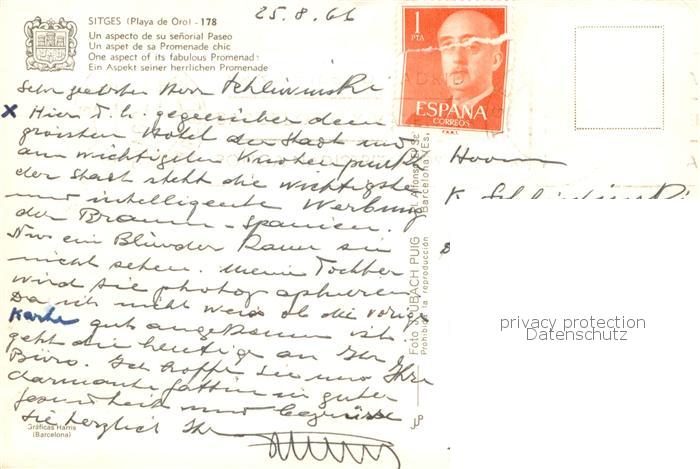 SITGES (Playa de Oro) - 178
Un aspecto de su señorial Paseo
Un aspet de sa Promenade chic
One aspect of its fabulous Promenade
Ein Aspekt seiner herrlichen Promenade
25.8.66
1
PTA
ESPAÑA
CORREOS
F.N.M.T.
Sehr geehrter Herr Schliwinski
x Hier d.h. gegenüber dem
grössten Hotel der Stadt und
am wichtigsten Knotenpunkt
der Stadt steht die wichtigste
und intelligente Werbung
der Braun-Spanien.
Nur ein Blinder kann sie
nicht sehen. Meine Tochter
wird sie photographieren
Da ich nicht weiss ob die vorige
Karte gut angekommen ist
geht die heutige an Ihr
Büro. Ich hoffe sie und Ihre
charmante Gattin in guter
Gesundheit und begrüsse
Sie herzlich Ihr
Herrn
K. Schliwinski
Gráficas Harris
(Barcelona)
Foto J. UBACH PUIG
Prohibida la reproducción
Barcelona (Es
privacy protection
Datenschutz